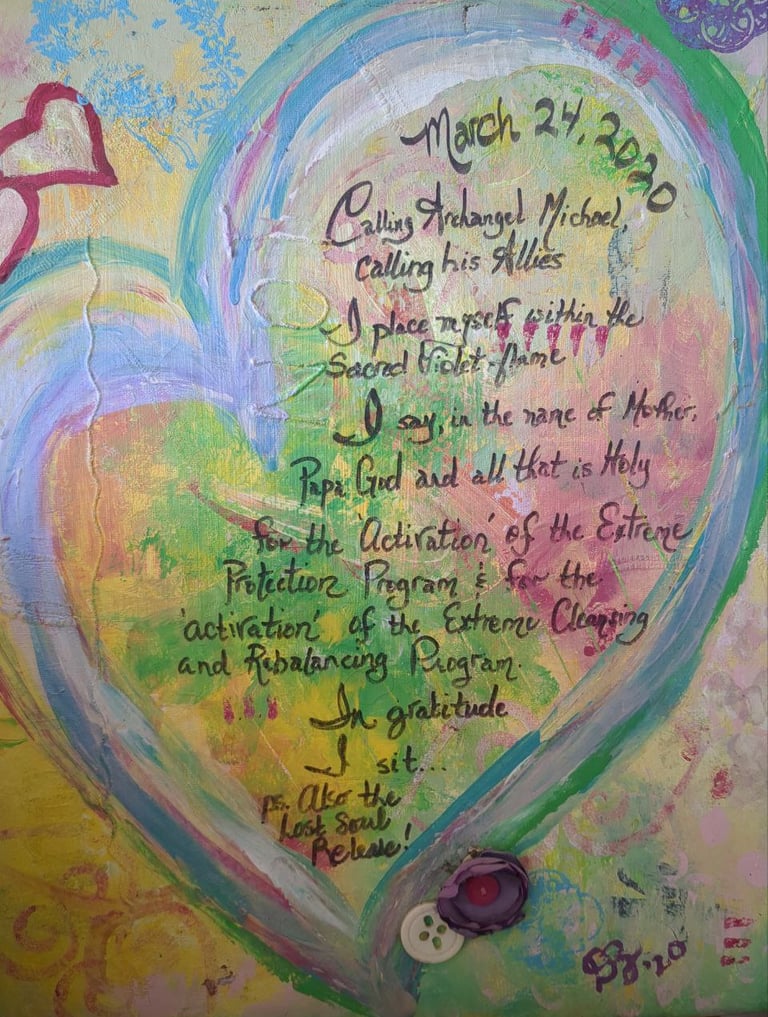 March 24, 2020
Calling Archangel Michael,
calling his Allies
I place myself within the
Sacred Violet-flame
I say, in the name of Mother,
Papa God and all that is Holy
for the 'Activation' of the Extreme
Protection Program & for the
'activation' of the Extreme Cleansing
and Rebalancing Program.
In gratitude
I sit...
ps. Also the
Lost Soul
Release!